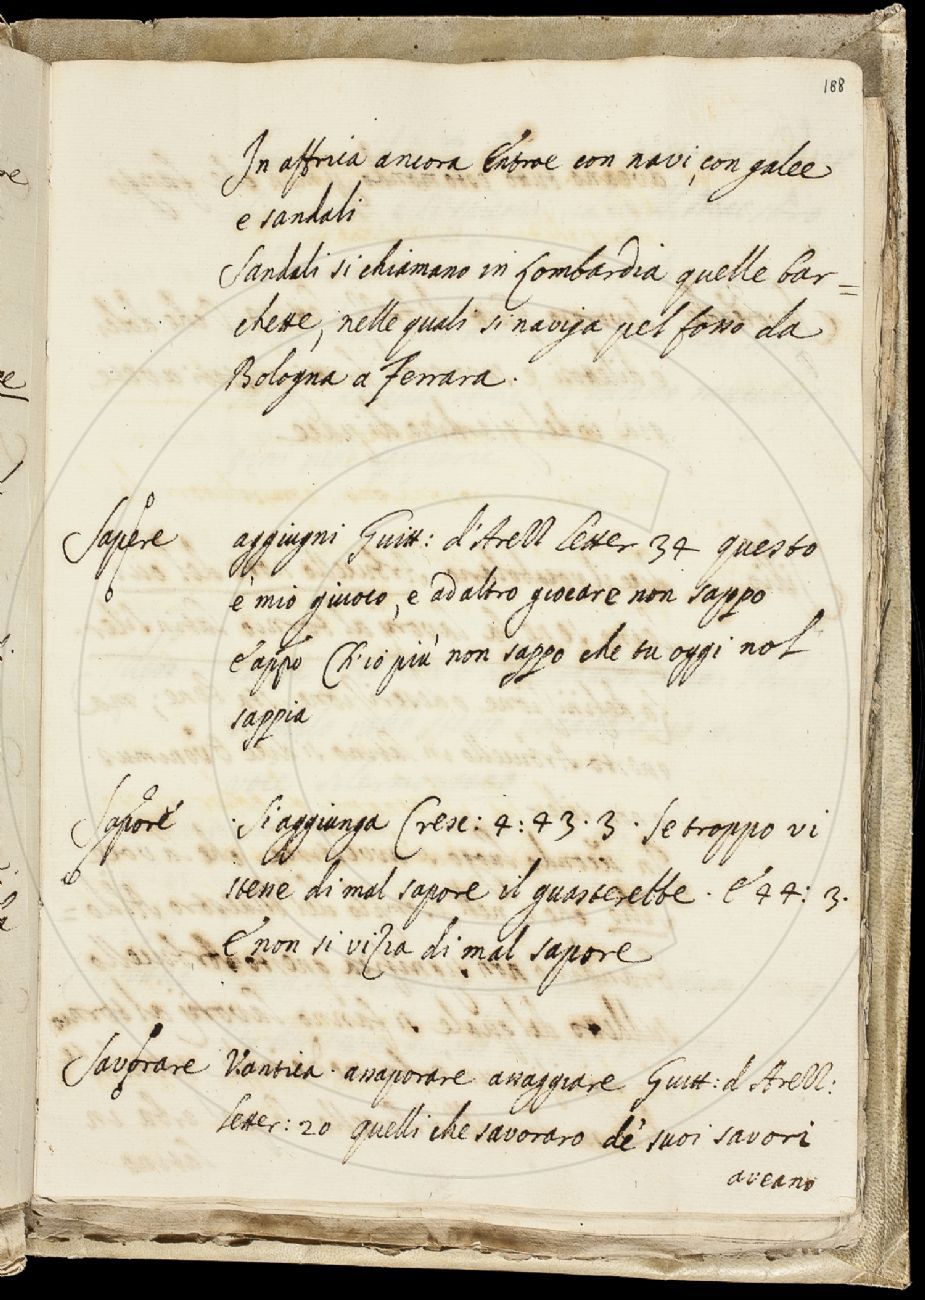 188
In affrica ancora Entroe con navi, con galee
e sandali
Sandali si chiamano in Lombardia quelle bar=
chette, nelle quali si naviga pel fosso da
Bologna a Ferrara.
Sapere aggiugni Guitt: d'Arezz Letter 34 questo
è mio giuoco, e ad altro giocare non sappo
E appo Ch'io più non sappo che tu oggi nol
sappia
Sapore Si aggiunga Cresc: 4: 43. 3. Se troppo vi
stene di mal sapore il guasterebbe. E 44: 3.
E non si vizia di mal sapore
Savorare V antica. assaporare assaggiare Guitt: d Arezz:
Letter: 20 quelli che savoraro de' suoi savori
aveano